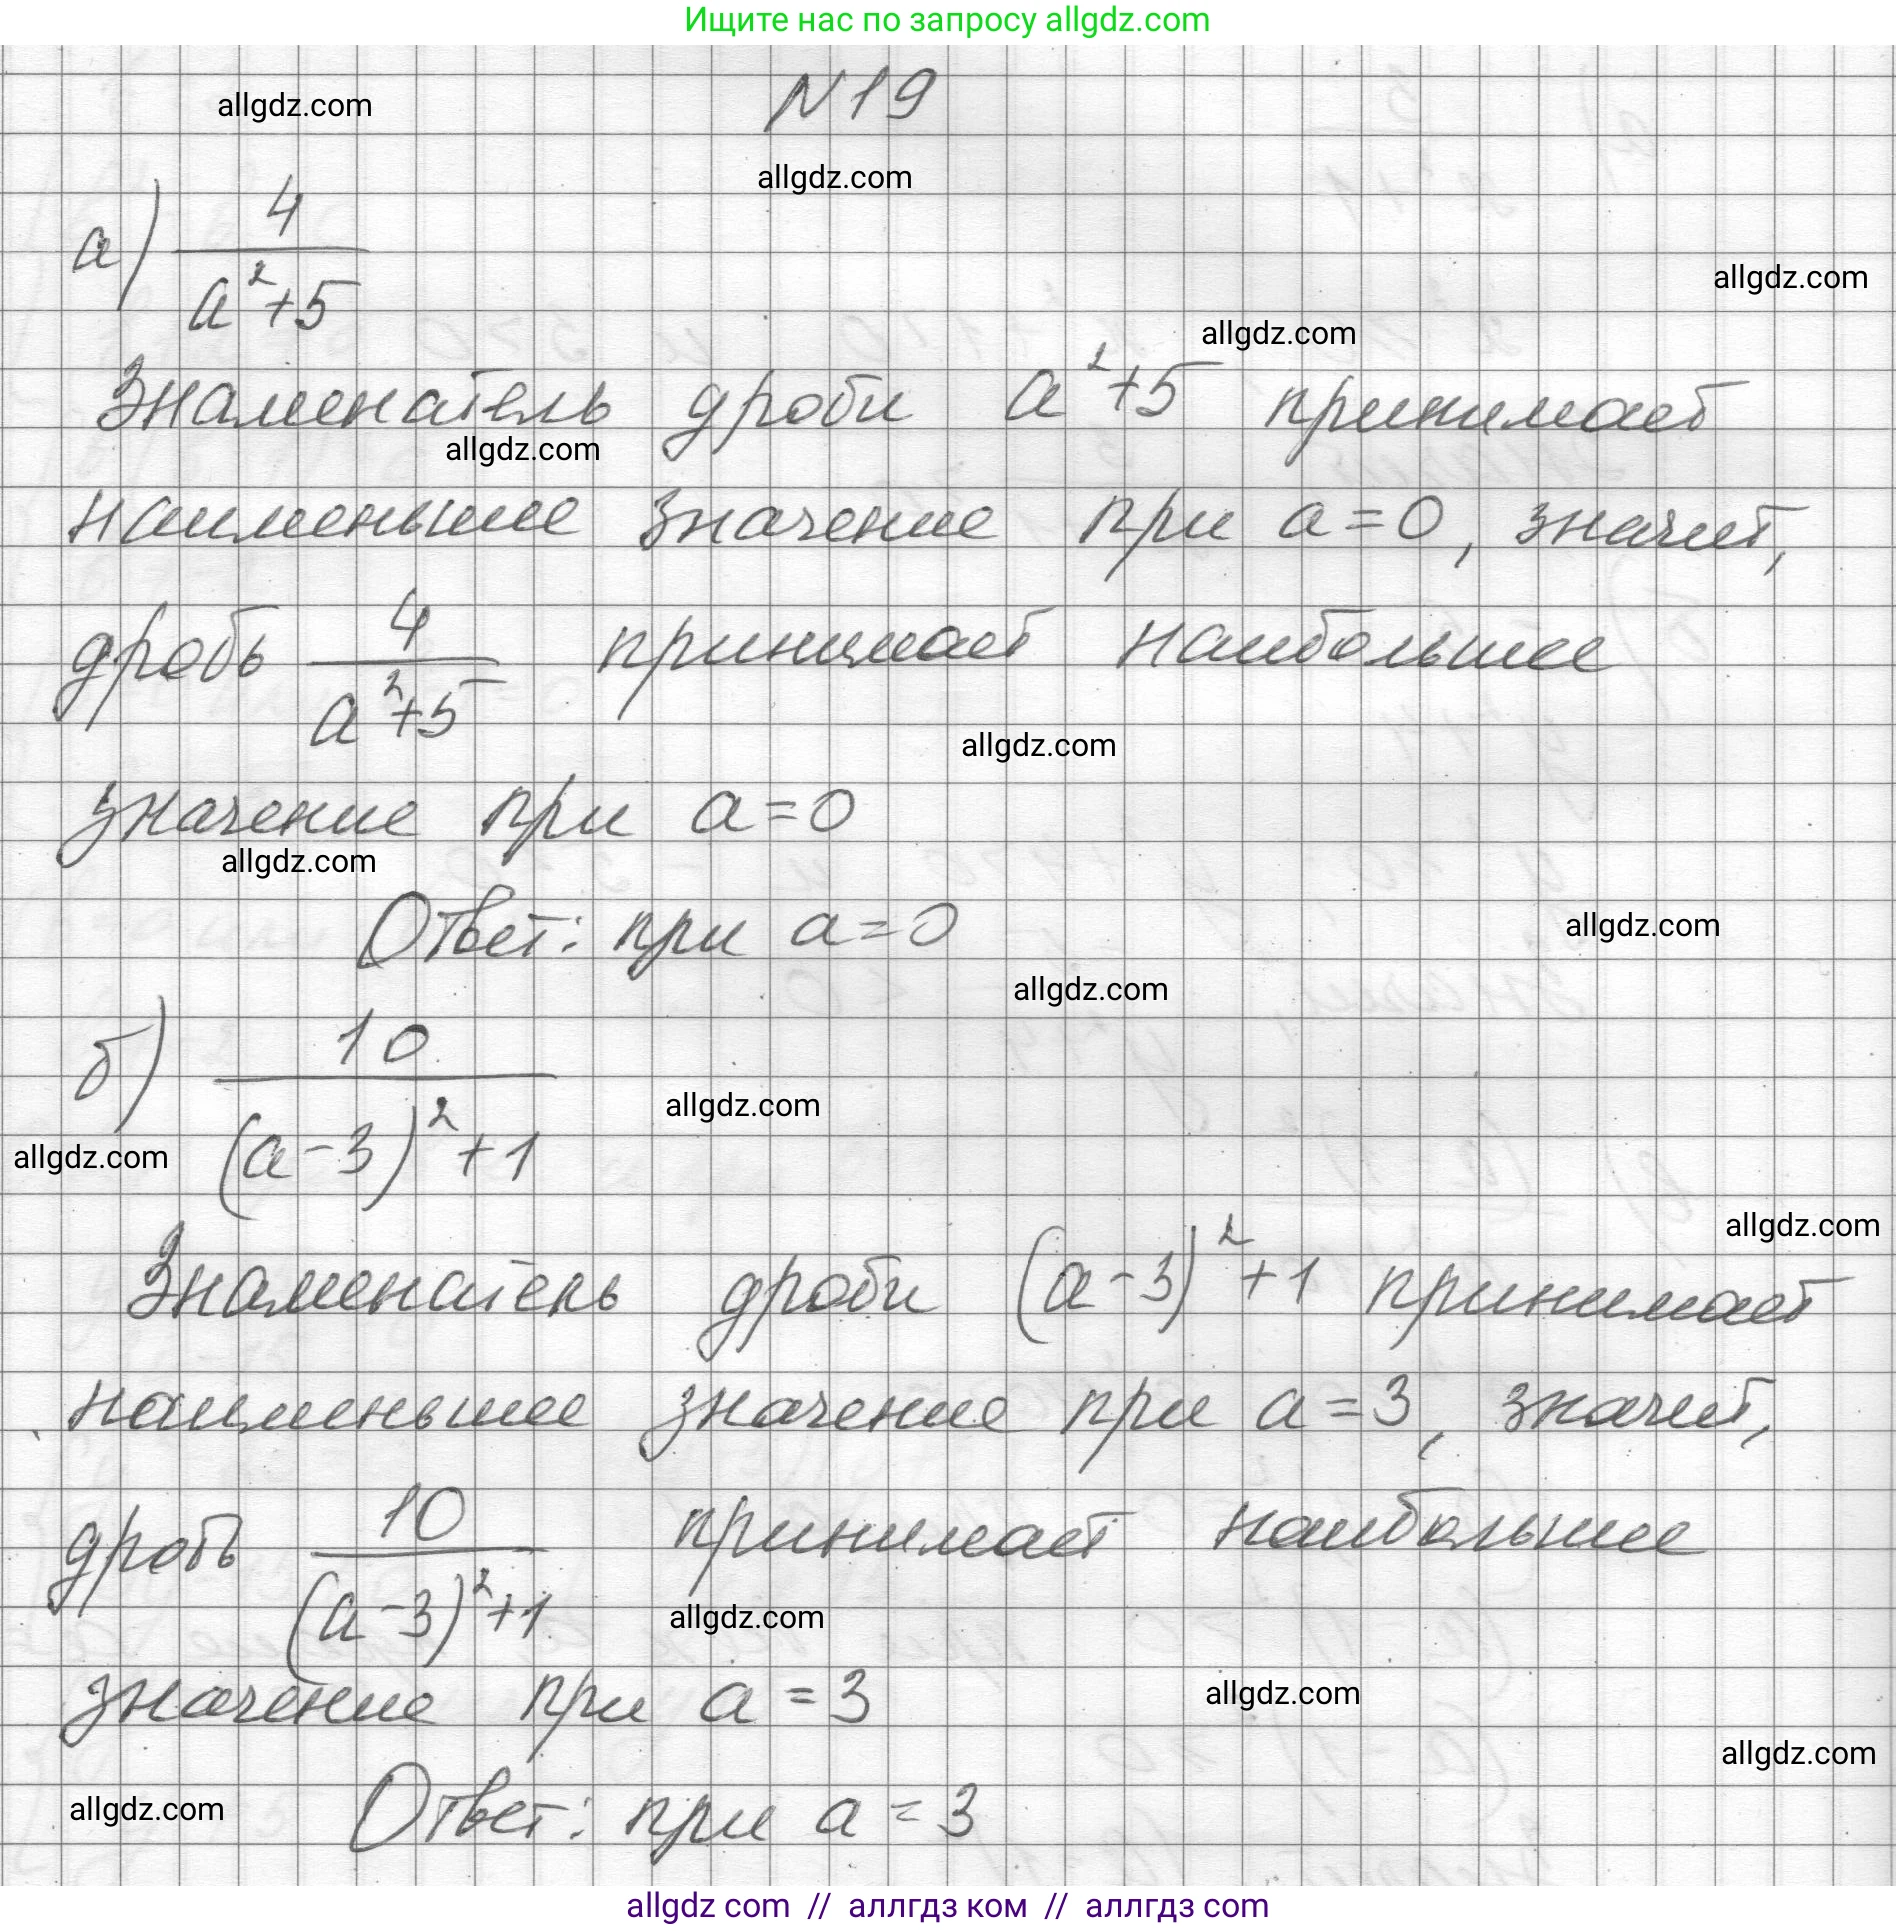 Ищите нас по запросу allgdz.com
N19
allgdz.com
allgdz.com
а) 4/(a²+5)
allgdz.com
allgdz.com
Знаменатель дроби a²+5 принимает
allgdz.com
наименьшее значение при a=0, значит,
дробь 4/(a²+5) принимает наибольшее
allgdz.com
значение при a=0
allgdz.com
Ответ: при a=0
allgdz.com
allgdz.com
б) 10/((a-3)²+1)
allgdz.com
allgdz.com
allgdz.com
Знаменатель дроби (a-3)²+1 принимает
наименьшее значение при a=3, значит,
дробь 10/((a-3)²+1) принимает наибольшее
allgdz.com
значение при a=3
allgdz.com
allgdz.com
allgdz.com
Ответ: при a=3
allgdz.com // аллгдз ком // аллгдз com